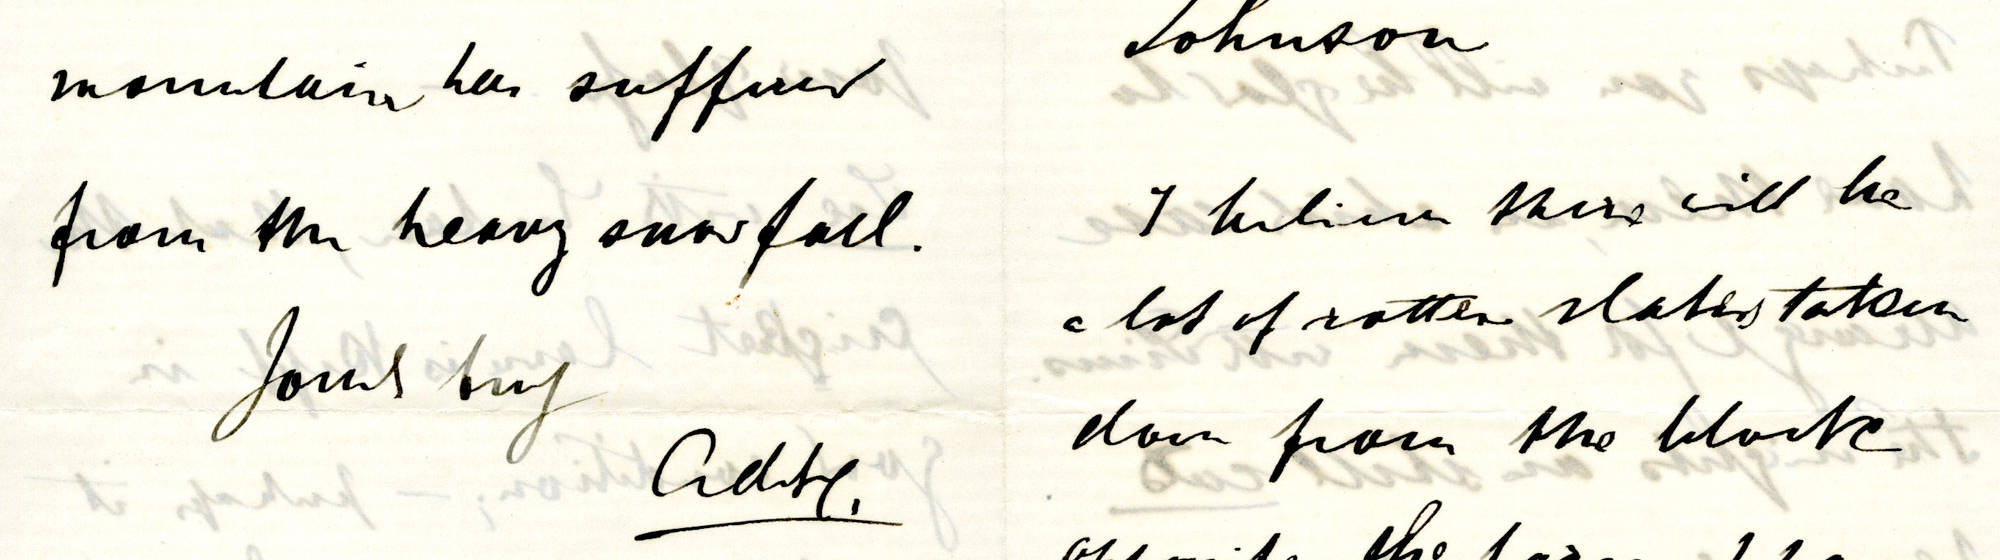 mountain has suffered
from the heavy snowfall.
Yours truly
Johnson
I believe there will be
a lot of rotten slates taken
down from the block
opposite the